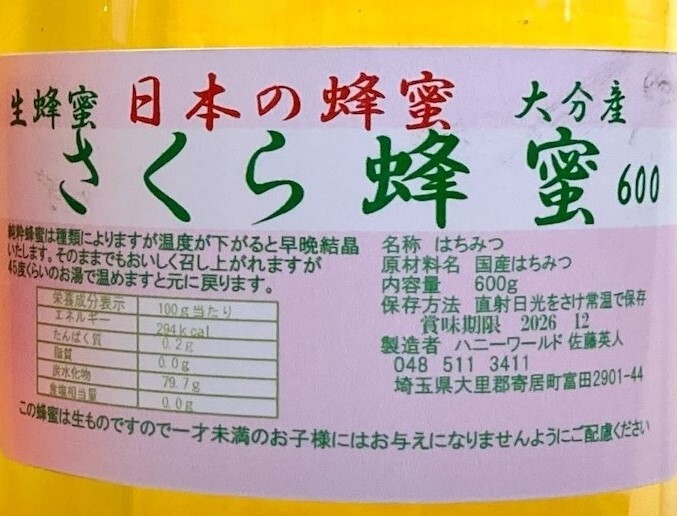 生蜂蜜 日本の蜂蜜 大分産
さくら蜂蜜 600
純粋蜂蜜は種類によりますが温度が下がると早晩結晶
いたします。そのままでもおいしく召し上がれますが
45度くらいのお湯で温めますと元に戻ります。
栄養成分表示 100g当たり
エネルギー 294kcal
たんぱく質 0.2g
脂質 0.0g
炭水化物 79.7g
食塩相当量 0.0g
名称 はちみつ
原材料名 国産はちみつ
内容量 600g
保存方法 直射日光をさけ常温で保存
賞味期限 2026 12
製造者 ハニーワールド 佐藤英人
048 511 3411
埼玉県大里郡寄居町富田2901-44
この蜂蜜は生ものですので一才未満のお子様にはお与えになりませんようにご配慮ください